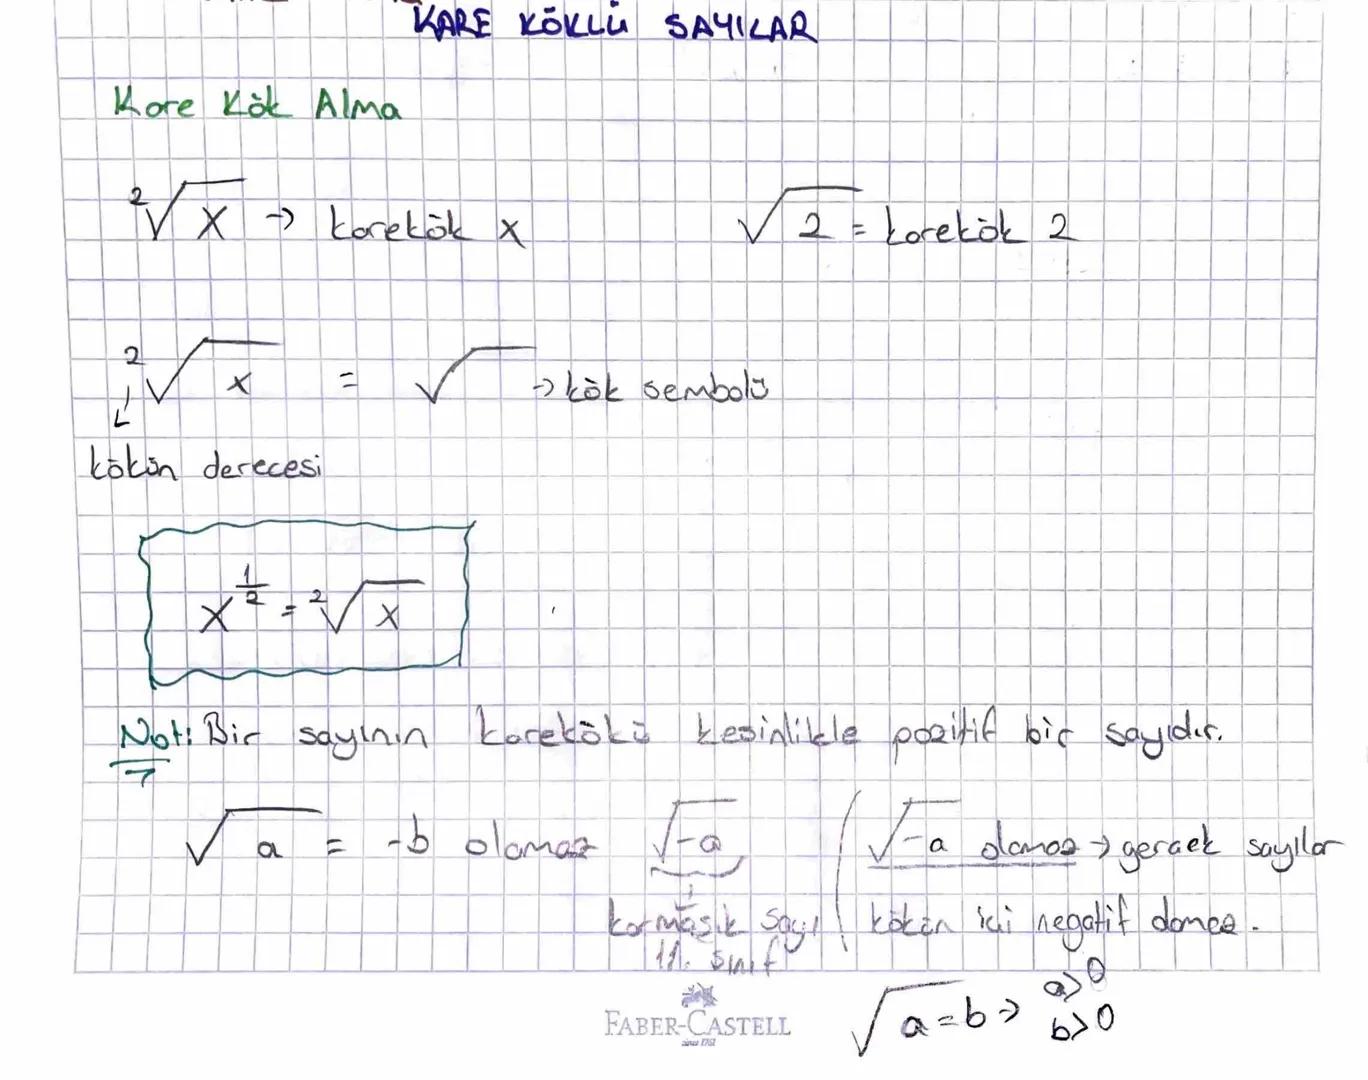 KARE KÖKLÜ SAYILAR
Kare Kök Alma
²√x → karekök x
√2 = karekök 2
²√x = √ → kök sembolü
kökün derecesi
x^(1/2) = ²√x
Not: Bir sayının karekökü kesinlikle pozitif bir sayıdır.
√a = -b olamaz √-a
karmaşık sayı
11. sınıf
√-a olamaz → gerçek sayılar
kökün içi negatif olamaz.
√a = b → a>0
b>0
FABER-CASTELL
since 1761